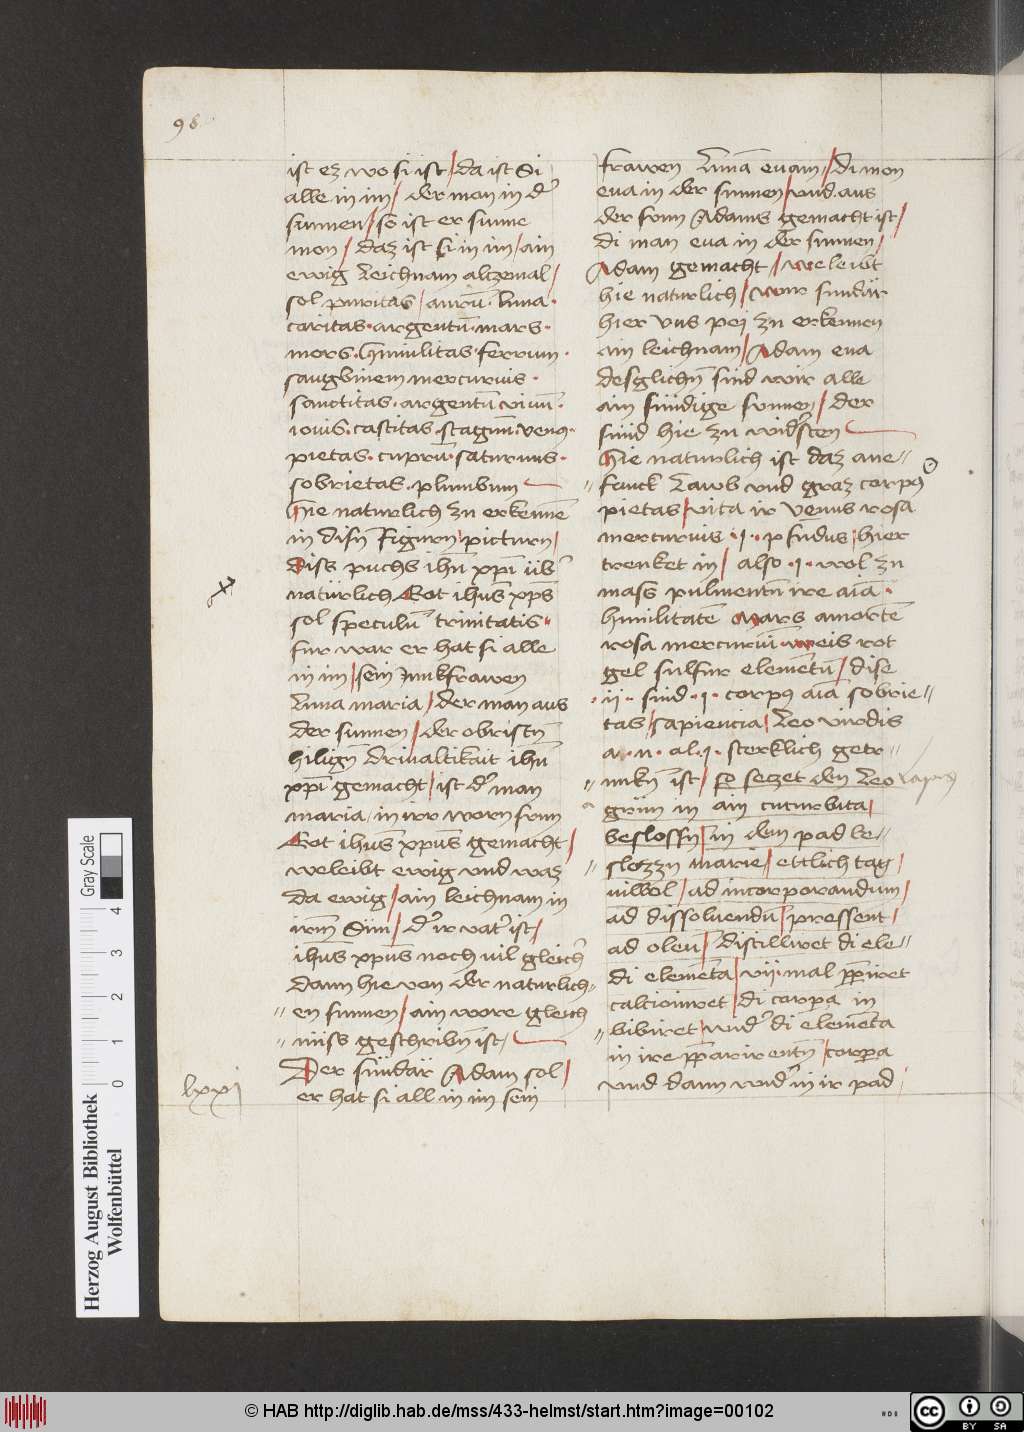 98
ist ez wo si ist / da ist Si
alle in im / der man in d'
sunnen / so ist er sunne
mon / daz ist si in im / ain
ewig leichnam altzemal /
sol puritas / aurū· luna·
caritas·argentū·mars·
mors·humilitas·ferrum·
sangbinem mercurius·
sanctitas·argentū viuū·
iouis·castitas·stagnū·venus·
pietas·cuprū·saturnus·
sobrietas·plumbum
Hie naturlich zu erkennē
in disn̄ figurn / picturn /
diss puchs ihū xp̄i üb'
natürlich Got ihūs xp̄s
sol speculū trinitatis
fur war er hat si alle
in im / sein Junkfrawen
Luna maria / der man aus
der sunnen / der obristn̄
hilign̄ driualtikait ihū
xp̄i gemacht / ist d' man
maria / in irr worn sunn
Got ihūs xp̄us gemacht /
weleibt ewig vnd waz
da ewig / ain leichnam in
irm̄ Sun / d' ir vat' ist /
ihūs xp̄us noch uil gleich'
dann hie von der naturlich=
en sunnen / ain wore gleich
nüss geschribn̄ ist /
lxxj
Der sündär Adam sol /
er hat si all in im sein
frawen Lunā euam / di mon
eua in der sunnen / vnd aus
der sunn Adams gemacht ist /
di man eua in der sunnen /
Adam gemacht / weleibt
hie naturlich / wur sundär
hier vns pej zu erkennen
ain leichnam / Adam eua
desglichn̄ sind wir alle
ain sündige sunnen / der
sünd hie zu wid'sten
Hie naturlich ist daz ane=
fanck Lawb vnd graz corpus
pietas / vita ir venus rosa
mercurius ·j· p fudus / hier
trenket in / also ·j· wol zu
mass pulmentū ire aīā·
humilitatē Mars amortē
rosa mercuriū weis rot
gel sulfur elemētū / dise
·ij· sind ·j· corpus aīā sobrie=
tas / sapiencia / Leo virdis
a··n· al·j· sterklich getr=
unkn̄ ist / so sezet den Leo lapis
grün in ain cucurbita /
beslossn̄ / in dem pad be=
slozzn marie / ettlich tag /
uilwol / ad incorporandum /
ad dissoluendū / pressent /
ad oleū / distilliret di ele=
di elemēta / vij mal pp̄iret
calcioniret / di corpa in
bibiret / vnd' di elemēta
in ire pp̄arirentn̄ / corpora
vnd dann wid' in ir pad
Herzog August Bibliothek
Wolfenbüttel
Gray Scale
0 1 2 3 4
© HAB http://diglib.hab.de/mss/433-helmst/start.htm?image=00102
cc BY SA